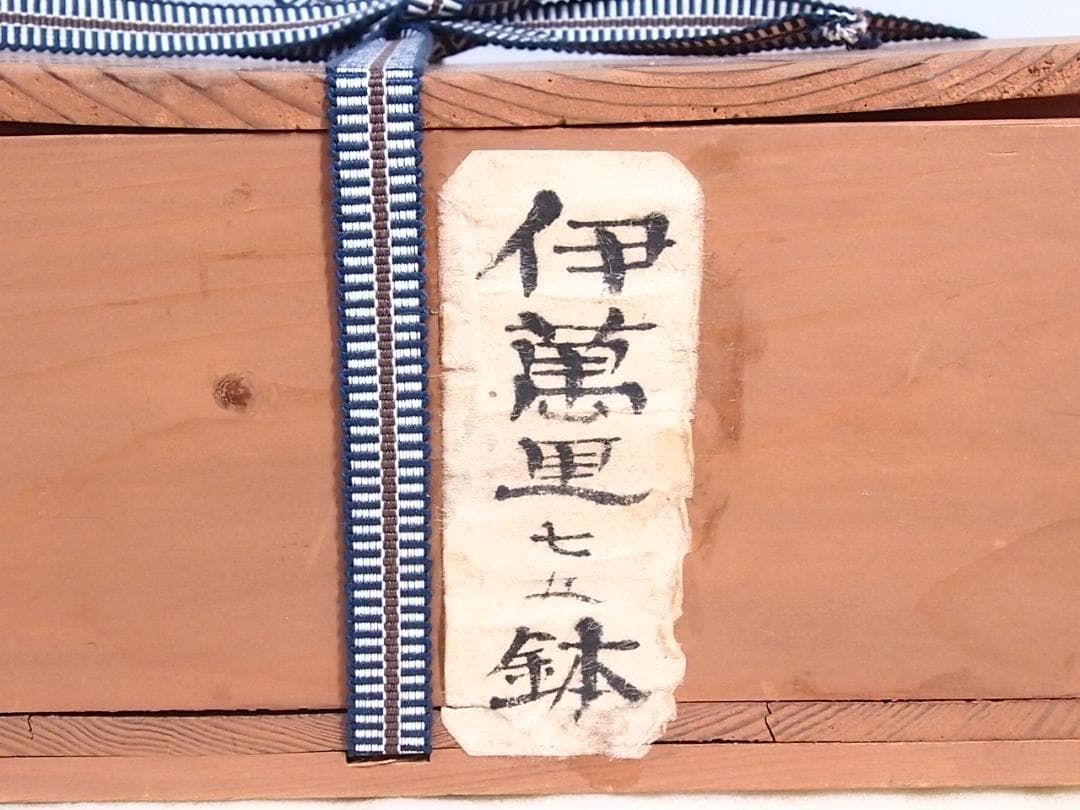 伊萬里七五鉢